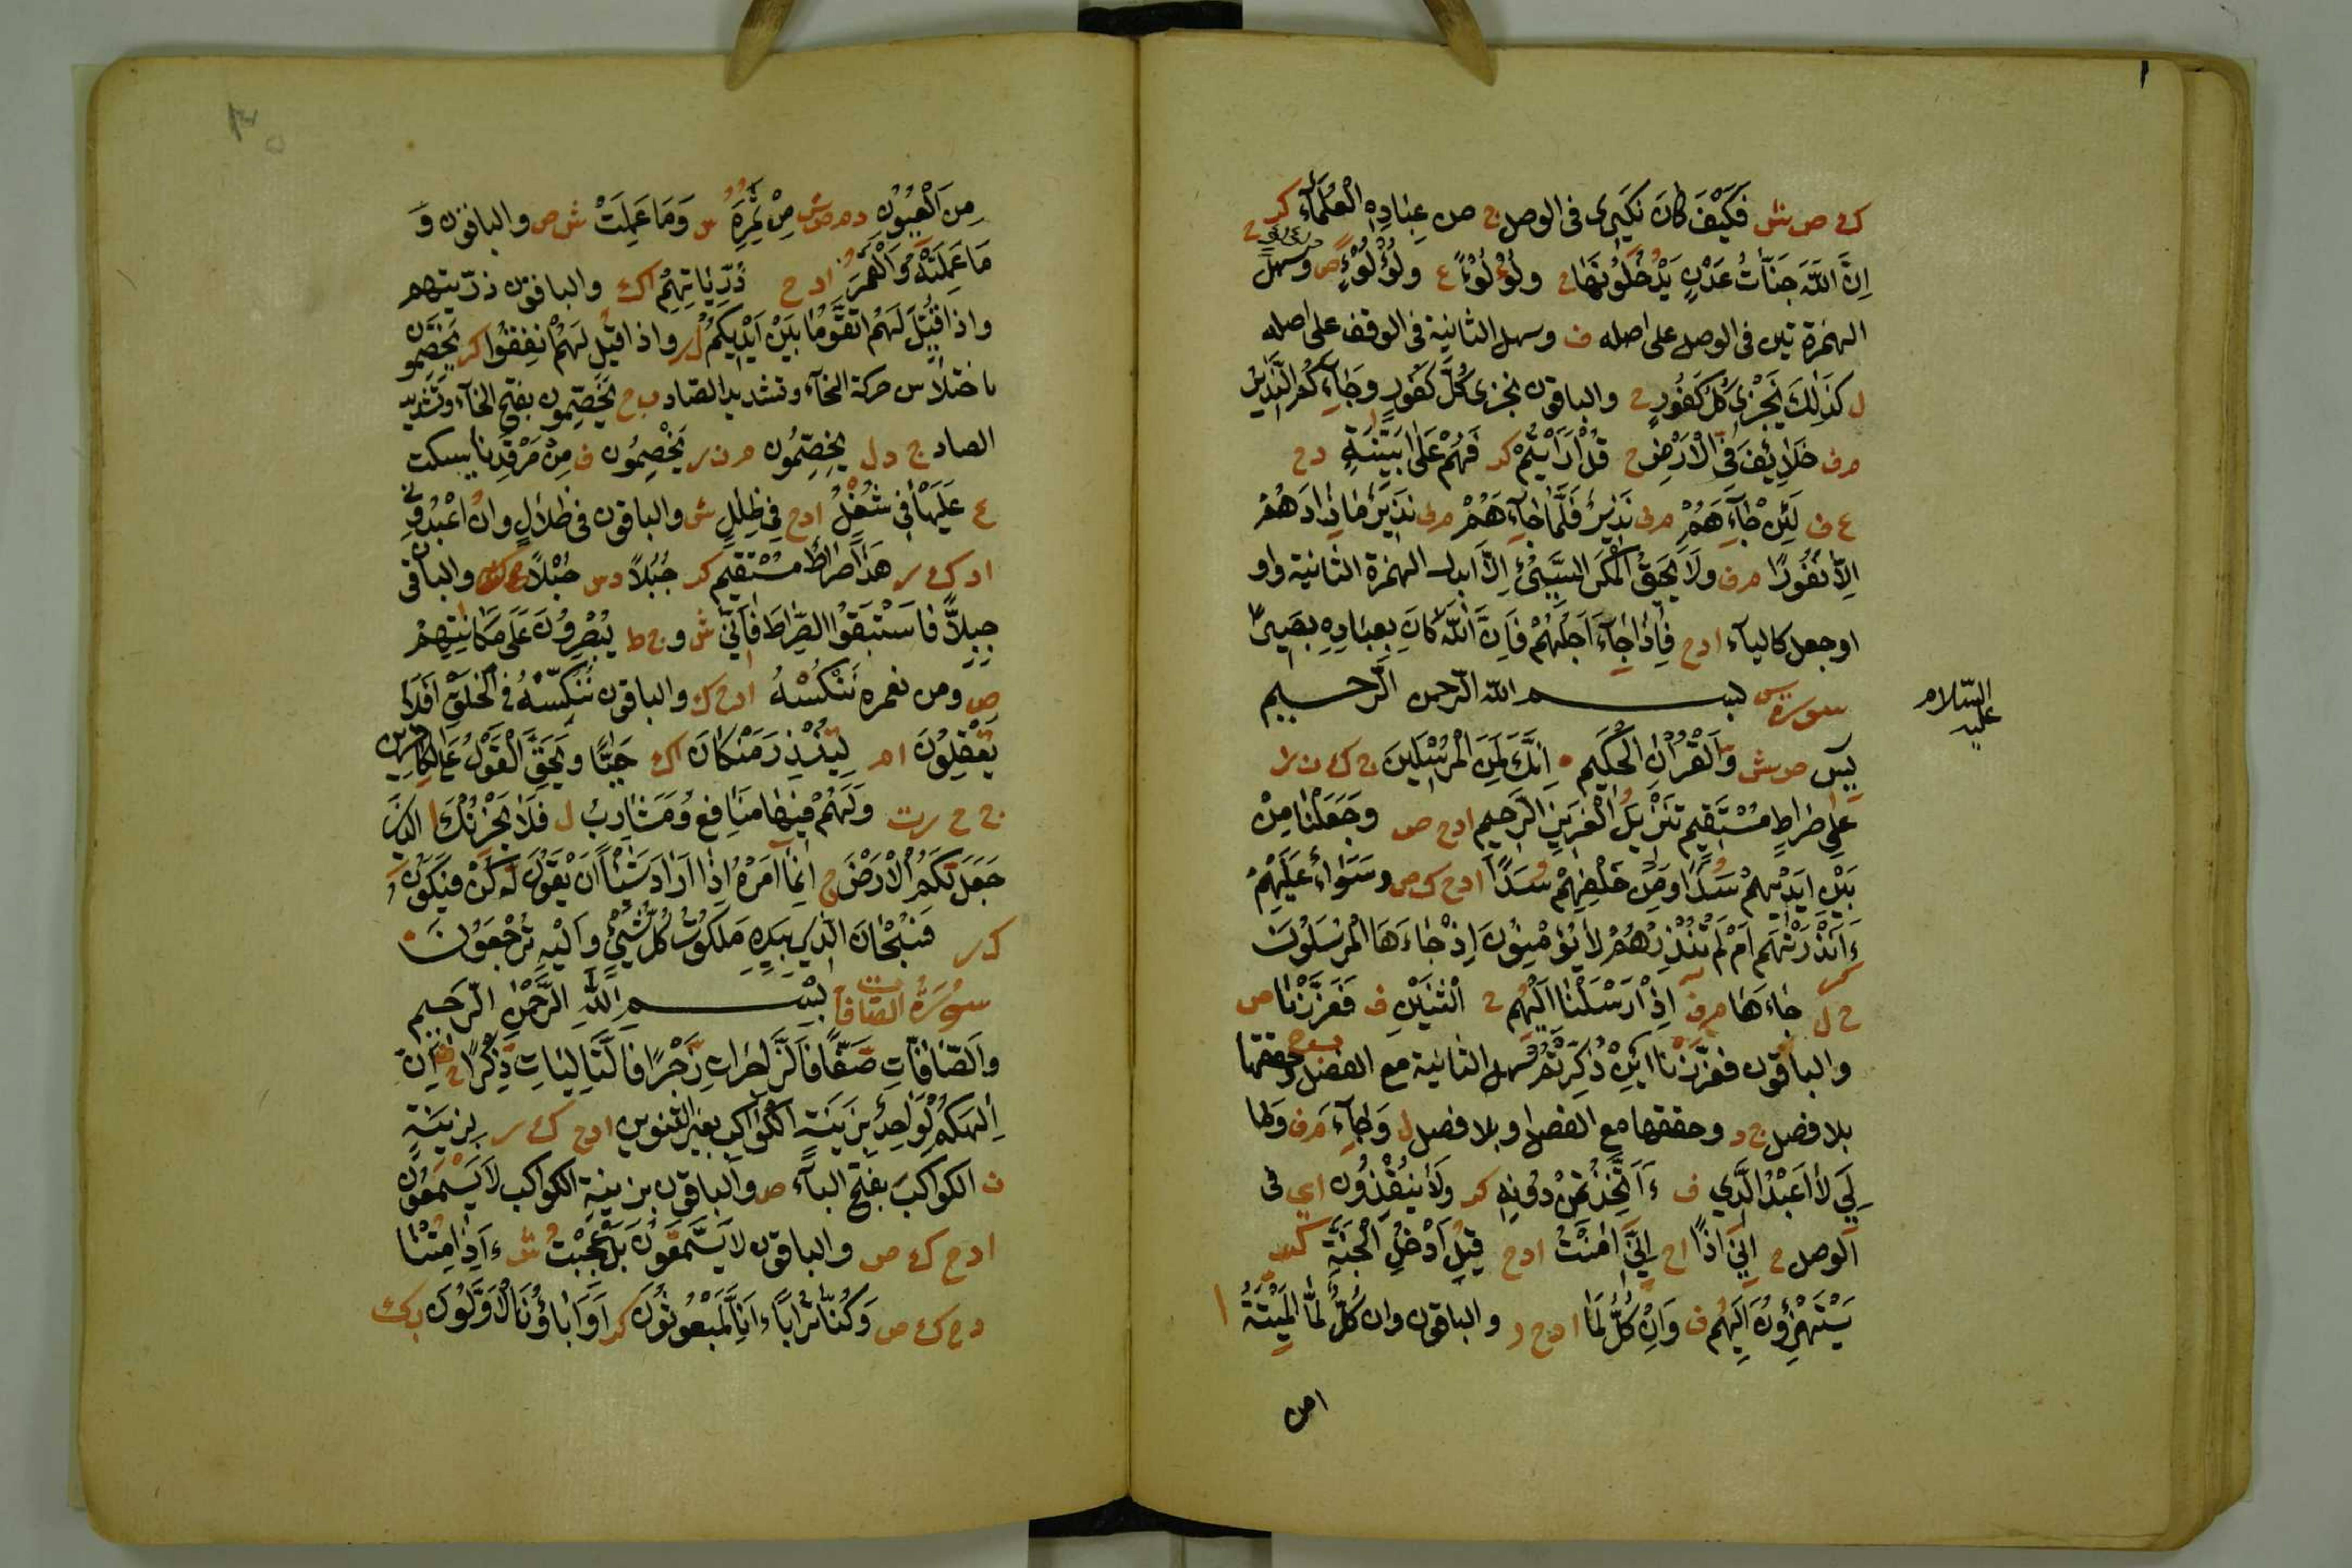 ك ص ش فَكَيْفَ كَانَ نَكِيرِى فى الوصل ج من عِبَادِهِ الْعُلَمَآءُ كر
اِنَّ اللّٰهَ جَنَّاتُ عَدْنٍ يَدْخُلُوْنَهَا ح ولُوْلُوْءًا ع ولُؤْلُوْءٍ ص وسهل
الهمزة تين فى الوصل على اصله ف وسهل الثانية فى الوقف على اصله
ل كَذَالِكَ يُجْزٰى كُلُّ كَفُورٍ ح والباقون نجزى كُلَّ كَفُورٍ وَجَآءَكُمُ النَّذِيرُ
م ف خَلَايِفَ فِى الْاَرْضِ ح قُلْ اَرَاَيْتُمْ كر فَهُمْ عَلٰى بَيِّنَةٍ د ح
ع ف لَئِنْ جَآءَهُمْ م ف نَذِيرٌ فَلَمَّا جَآءَهُمْ م ف نَذِيرٌ مَا زَادَهُمْ
اِلَّا نُفُورًا م ف ولَا يَحِيقُ الْمَكْرُ السَّيِّئُ اِلَّا ابدل الهمزة الثانية واو
او جعل كالياء ا د ح فَاِذَا جَآءَ اَجَلُهُمْ فَاِنَّ اللّٰهَ كَانَ بِعِبَادِهِ بَصِيرًا
سورة يس بسم الله الرحمن الرحيم
السلام
عليه
يٓس ص ش وَالْقُرْاٰنِ الْحَكِيمِ اِنَّكَ لَمِنَ الْمُرْسَلِينَ ج ك ن ر
عَلٰى صِرَاطٍ مُسْتَقِيمٍ تَنْزِيلُ الْعَزِيزِ الرَّحِيمِ ا د ح ص وَجَعَلْنَا مِنْ
بَيْنِ اَيْدِيهِمْ سَدًّا وَمِنْ خَلْفِهِمْ سُدًّا ا د ح ك ص وسَوَاءٌ عَلَيْهِمْ
ءَاَنْذَرْتَهُمْ اَمْ لَمْ تُنْذِرْهُمْ لَا يُؤْمِنُونَ اِذْ جَاءَهَا الْمُرْسَلُونَ
ح ل جَاءَهَا م ف اِذْ اَرْسَلْنَا اِلَيْهِمُ ح اثْنَيْنِ ف فَعَزَزْنَا ص
والباقون فعزّزنا اَئِنْ ذُكِّرْتُمْ سهل الثانية مع الفصل ب ح حققها
بلا فصل ج د وحققها مع الفصل وبلا فصل ل وَجَآءَ م ف وَمَا
لِىَ لَا اَعْبُدُ الَّذِي ف ءَاَتَّخِذُ مِنْ دُونِهِ كد ولَا يُنْقِذُونِ اى فى
الوصل ح اِنِّىَ اِذًا ا ح اِنِّىَ اٰمَنْتُ ا د ح قِيلَ ادْخُلِ الْجَنَّةَ كر
يَسْتَهْزِؤُنَ اِلَيْهِمْ ف وَاِنْ كُلٌّ لَمَا ا د ح ر والباقون وان كُلٌّ لَمَّا الْمَيِّتَةُ ا
من
مِنَ الْعِيُونِ د م ص ش مِنْ ثَمَرِهِ س وَمَا عَمِلَتْ ش ص والباقون وَ
مَا عَمِلَتْهُ وَالْقَمَرُ ا د ح ذُرِّيَّاتِهِمْ اك والباقون ذرّيتهم
واذا قِيلَ لَهُمُ اتَّقُوْا مَا بَيْنَ اَيْدِيكُمْ ل ر واذا قِيلَ لَهُمْ اَنْفِقُوْا كر يَخَصِّمُونَ
باختلاس حركة الخآء وتشديد الصّاد ب ح يَخَصِّمون بفتح الخآء وتشديد
الصاد ج د ل يَخِصِّمُون م ن ر يَخْصِمُون ف مِنْ مَرْقَدِنَا يسكت
ع عَلَيْهَا فِى شُغْلٍ ا د ح فِى ظُلَلٍ ش والباقون فى ظِلَالٍ وان اعْبُدُونِى
ا د ك ر هٰذَا صِرَاطٌ مُسْتَقِيمٌ كر جُبُلًا د س جُبْلًا ح ك والباقون
جِبِلًّا فَاسْتَبَقُوا الصِّرَاطَ فَاَنّٰى ش و ج ط يُبْصِرُونَ عَلٰى مَكَانَتِهِمْ
ص ومن نعمره نَنْكُسْهُ ا د ح ك والباقون نُنَكِّسْهُ فى الْخَلْقِ اَفَلَا
تَعْقِلُونَ ا م لِتُنْذِرَ مَنْ كَانَ اك حَيًّا وَيَحِقَّ الْقَوْلُ عَلَى الْكَافِرِينَ
ج ح ر ت وَلَهُمْ فِيهَا مَنَافِعُ وَمَشَارِبُ ل فَلَا يَحْزُنْكَ ا الَّذِى
جَعَلَ لَكُمُ الْاَرْضَ ح اِنَّمَا اَمْرُهُ اِذَا اَرَادَ شَيْئًا اَنْ يَقُولَ لَهُ كُنْ فَيَكُونَ
ك ر فَسُبْحَانَ الَّذِي بِيَدِهِ مَلَكُوتُ كُلِّ شَيْءٍ وَاِلَيْهِ تُرْجَعُونَ
سُورَةُ الصّافات بِسْمِ اللّٰهِ الرَّحْمٰنِ الرَّحِيمِ
وَالصَّافَّاتِ صَفًّا فَالزَّاجِرَاتِ زَجْرًا فَالتَّالِيَاتِ ذِكْرًا ح اِنَّ
اِلٰهَكُمْ لَوَاحِدٌ بِزِينَةِ الْكَوَاكِبِ بغير التنوين ا د ح ك ر بِزِينَةٍ
ن الكواكبَ بفتح البآء ص والباقون بزينةٍ الكواكب لَا يَسْمَعُونَ
ا د ح ك ص والباقون لا يَسَّمَّعُونَ بَلْ عَجِبْتُ ش ءَاِذَا مِتْنَا
د ح ك ص وَكُنَّا تُرَابًا ءَاِنَّا لَمَبْعُوثُونَ كد اَوَ اٰبَاؤُنَا الْاَوَّلُونَ بك